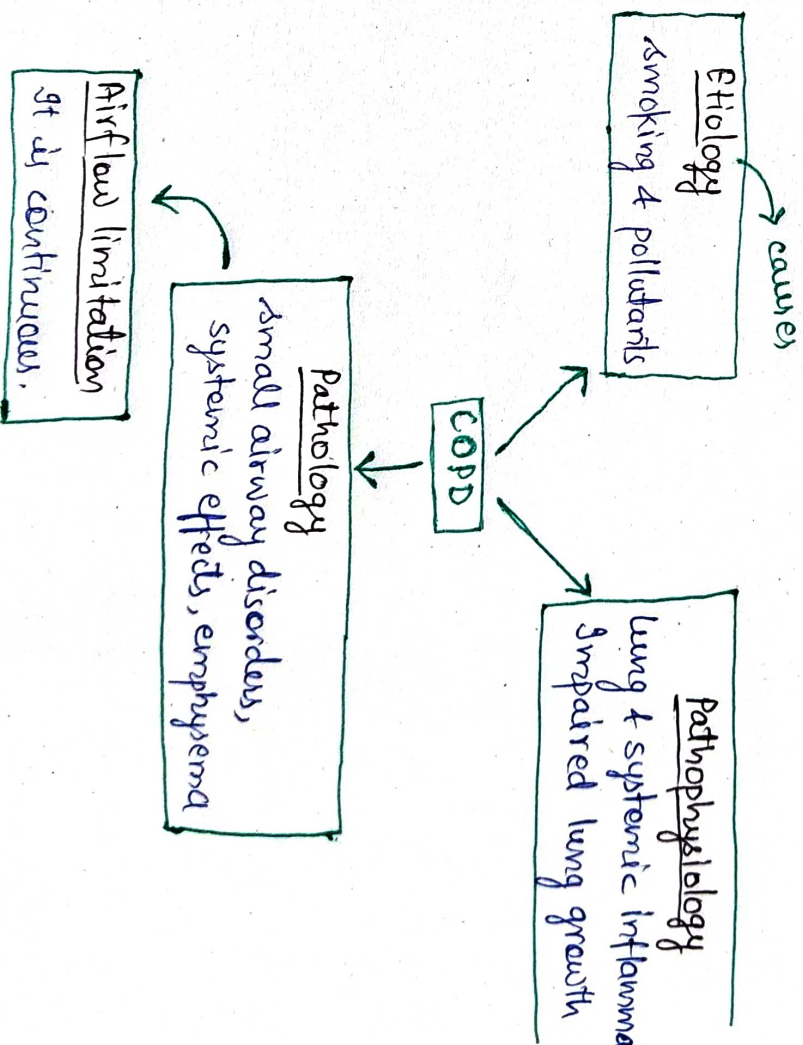 causes
Etiology
smoking & pollutants
Pathophysiology
lung & systemic inflamma
Impaired lung growth
COPD
Pathology
small airway disorders,
systemic effects, emphysema
Airflow limitation
It is continuous.